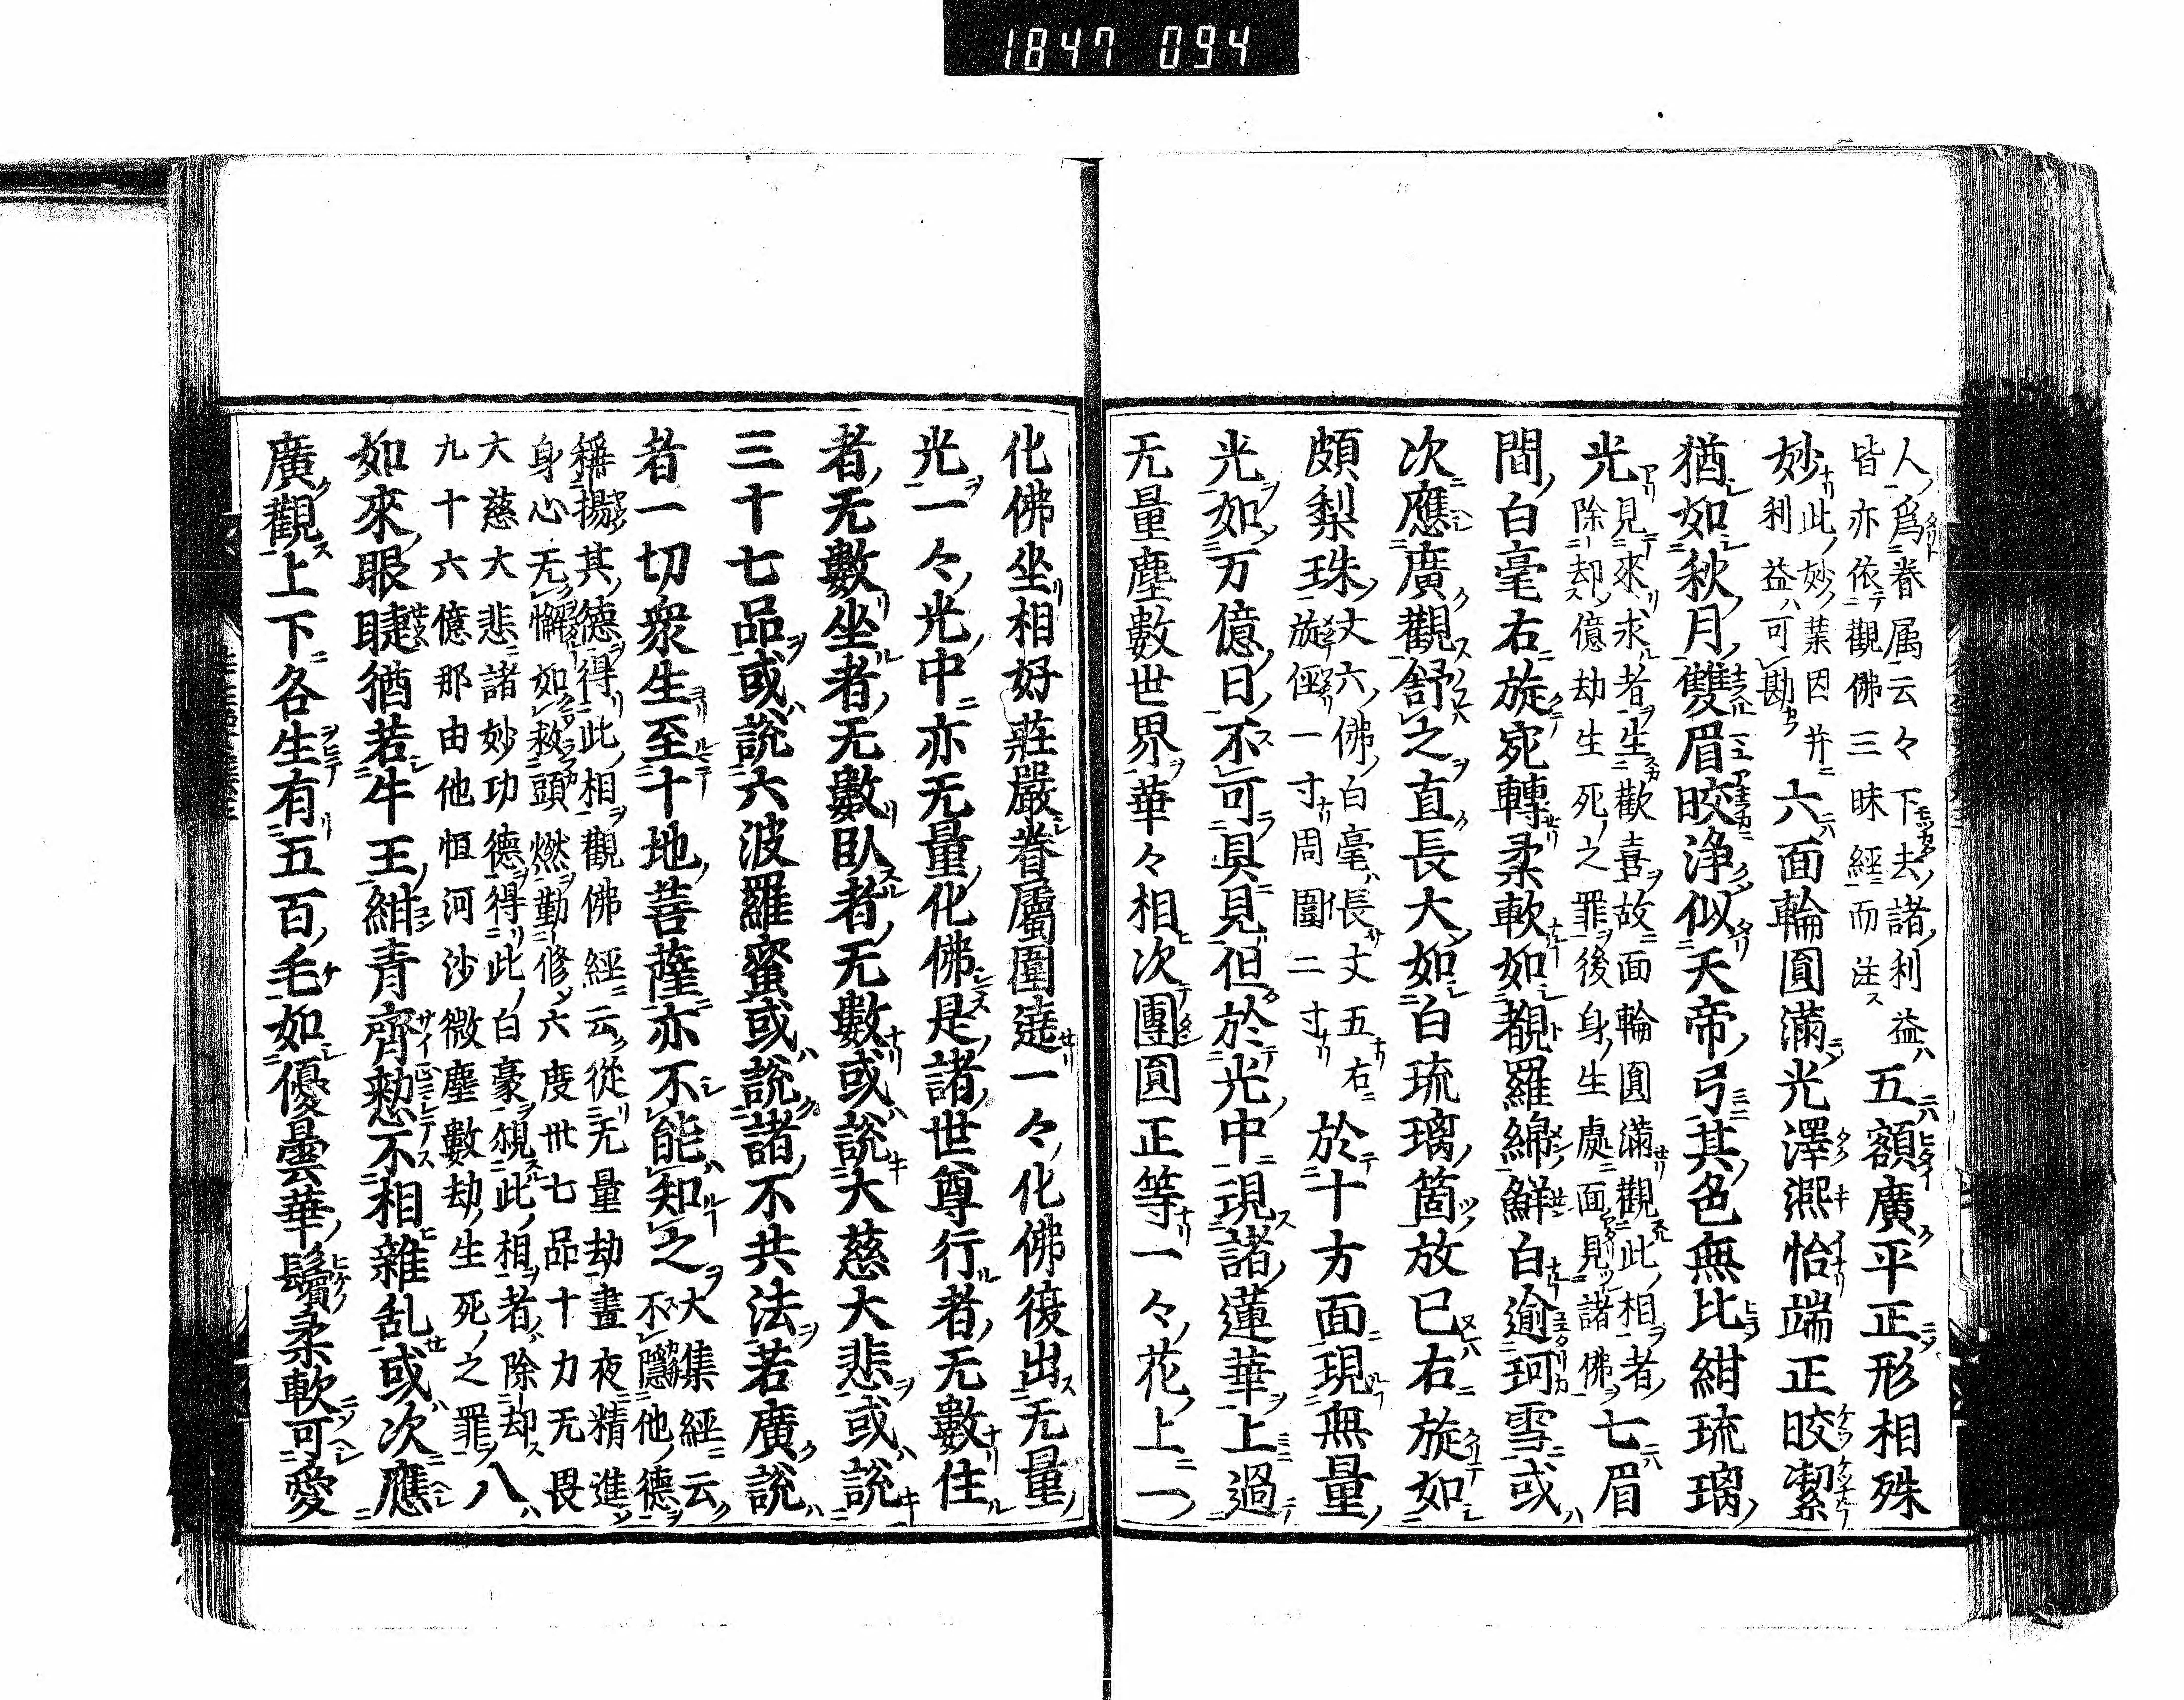 1847 094
人爲眷属云々下去諸利益
皆亦依觀佛三昧經而注
五額廣平正形相殊
妙
此妙葉因并
利益可勘
六面輪圓滿光澤熈怡端正晈潔
猶如秋月雙眉晈浄似天帝弓其色無比紺琉璃
光
見來求者生歡喜故面輪圓滿觀此相者
除却億劫生死之罪後身生處面見諸佛
七眉
間白毫右旋宛轉柔軟如覩羅綿鮮白逾珂雪或
次應廣觀舒之直長大如白琉璃筒放已右旋如
頗梨珠
丈六佛白毫長丈五右
旋径一寸周圍二寸
於十方面現無量
光如万億日不可具見但於光中現諸蓮華上過
无量塵數世界華々相次團圓正等一々花上一
化佛坐相好莊嚴眷屬圍遶一々化佛復出无量
光一々光中亦无量化佛是諸世尊行者无數住
者无數坐者无數臥者无數或說大慈大悲或說
三十七品或說六波羅蜜或說諸不共法若廣說
者一切衆生至十地菩薩亦不能知之
大集經云
不隱他德
稱揚其德得此相觀佛經云從无量劫晝夜精進
身心无懈如救頭燃勤修六度卅七品十力无畏
大慈大悲諸妙功德得此白豪覌此相者除却
九十六億那由他恒河沙微塵數劫生死之罪
八
如來眼睫猶若牛王紺青齊整不相雜乱或次應
廣觀上下各生有五百毛如優曇華鬚柔軟可愛